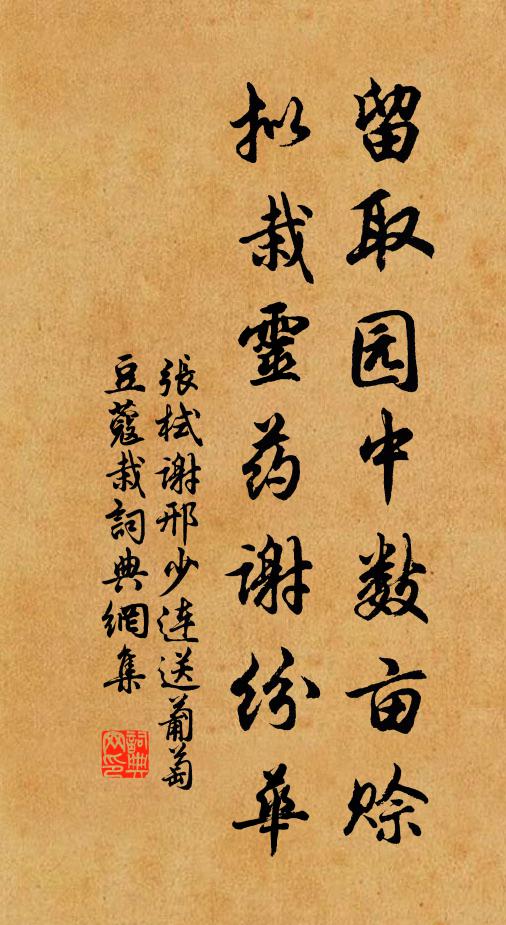 留取园中数亩赊
拟栽靈药谢纷華
張栻谢邢少連送葡萄
豆蔻栽詞典網集
詞典網印